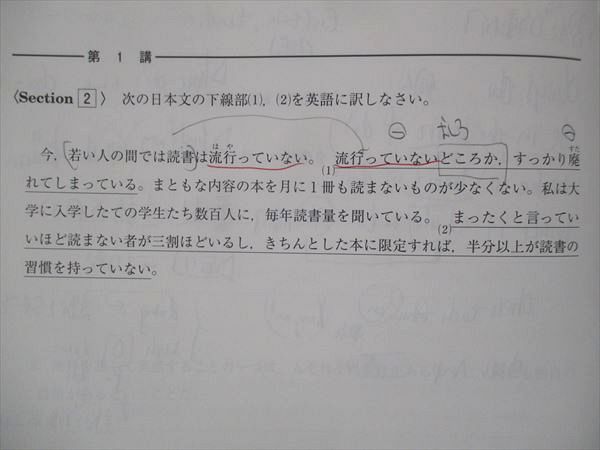 第 1 講
〈Section 2〉 次の日本文の下線部(1),(2)を英語に訳しなさい。
今,若い人の間では読書は流行っていない。 流行っていないどころか,すっかり廃
れてしまっている。まともな内容の本を月に1冊も読まないものが少なくない。私は大
学に入学したての学生たち数百人に,毎年読書量を聞いている。 まったくと言ってい
(1)
(2)
いほど読まない者が三割ほどいるし,きちんとした本に限定すれば,半分以上が読書の
習慣を持っていない。
はや
すた